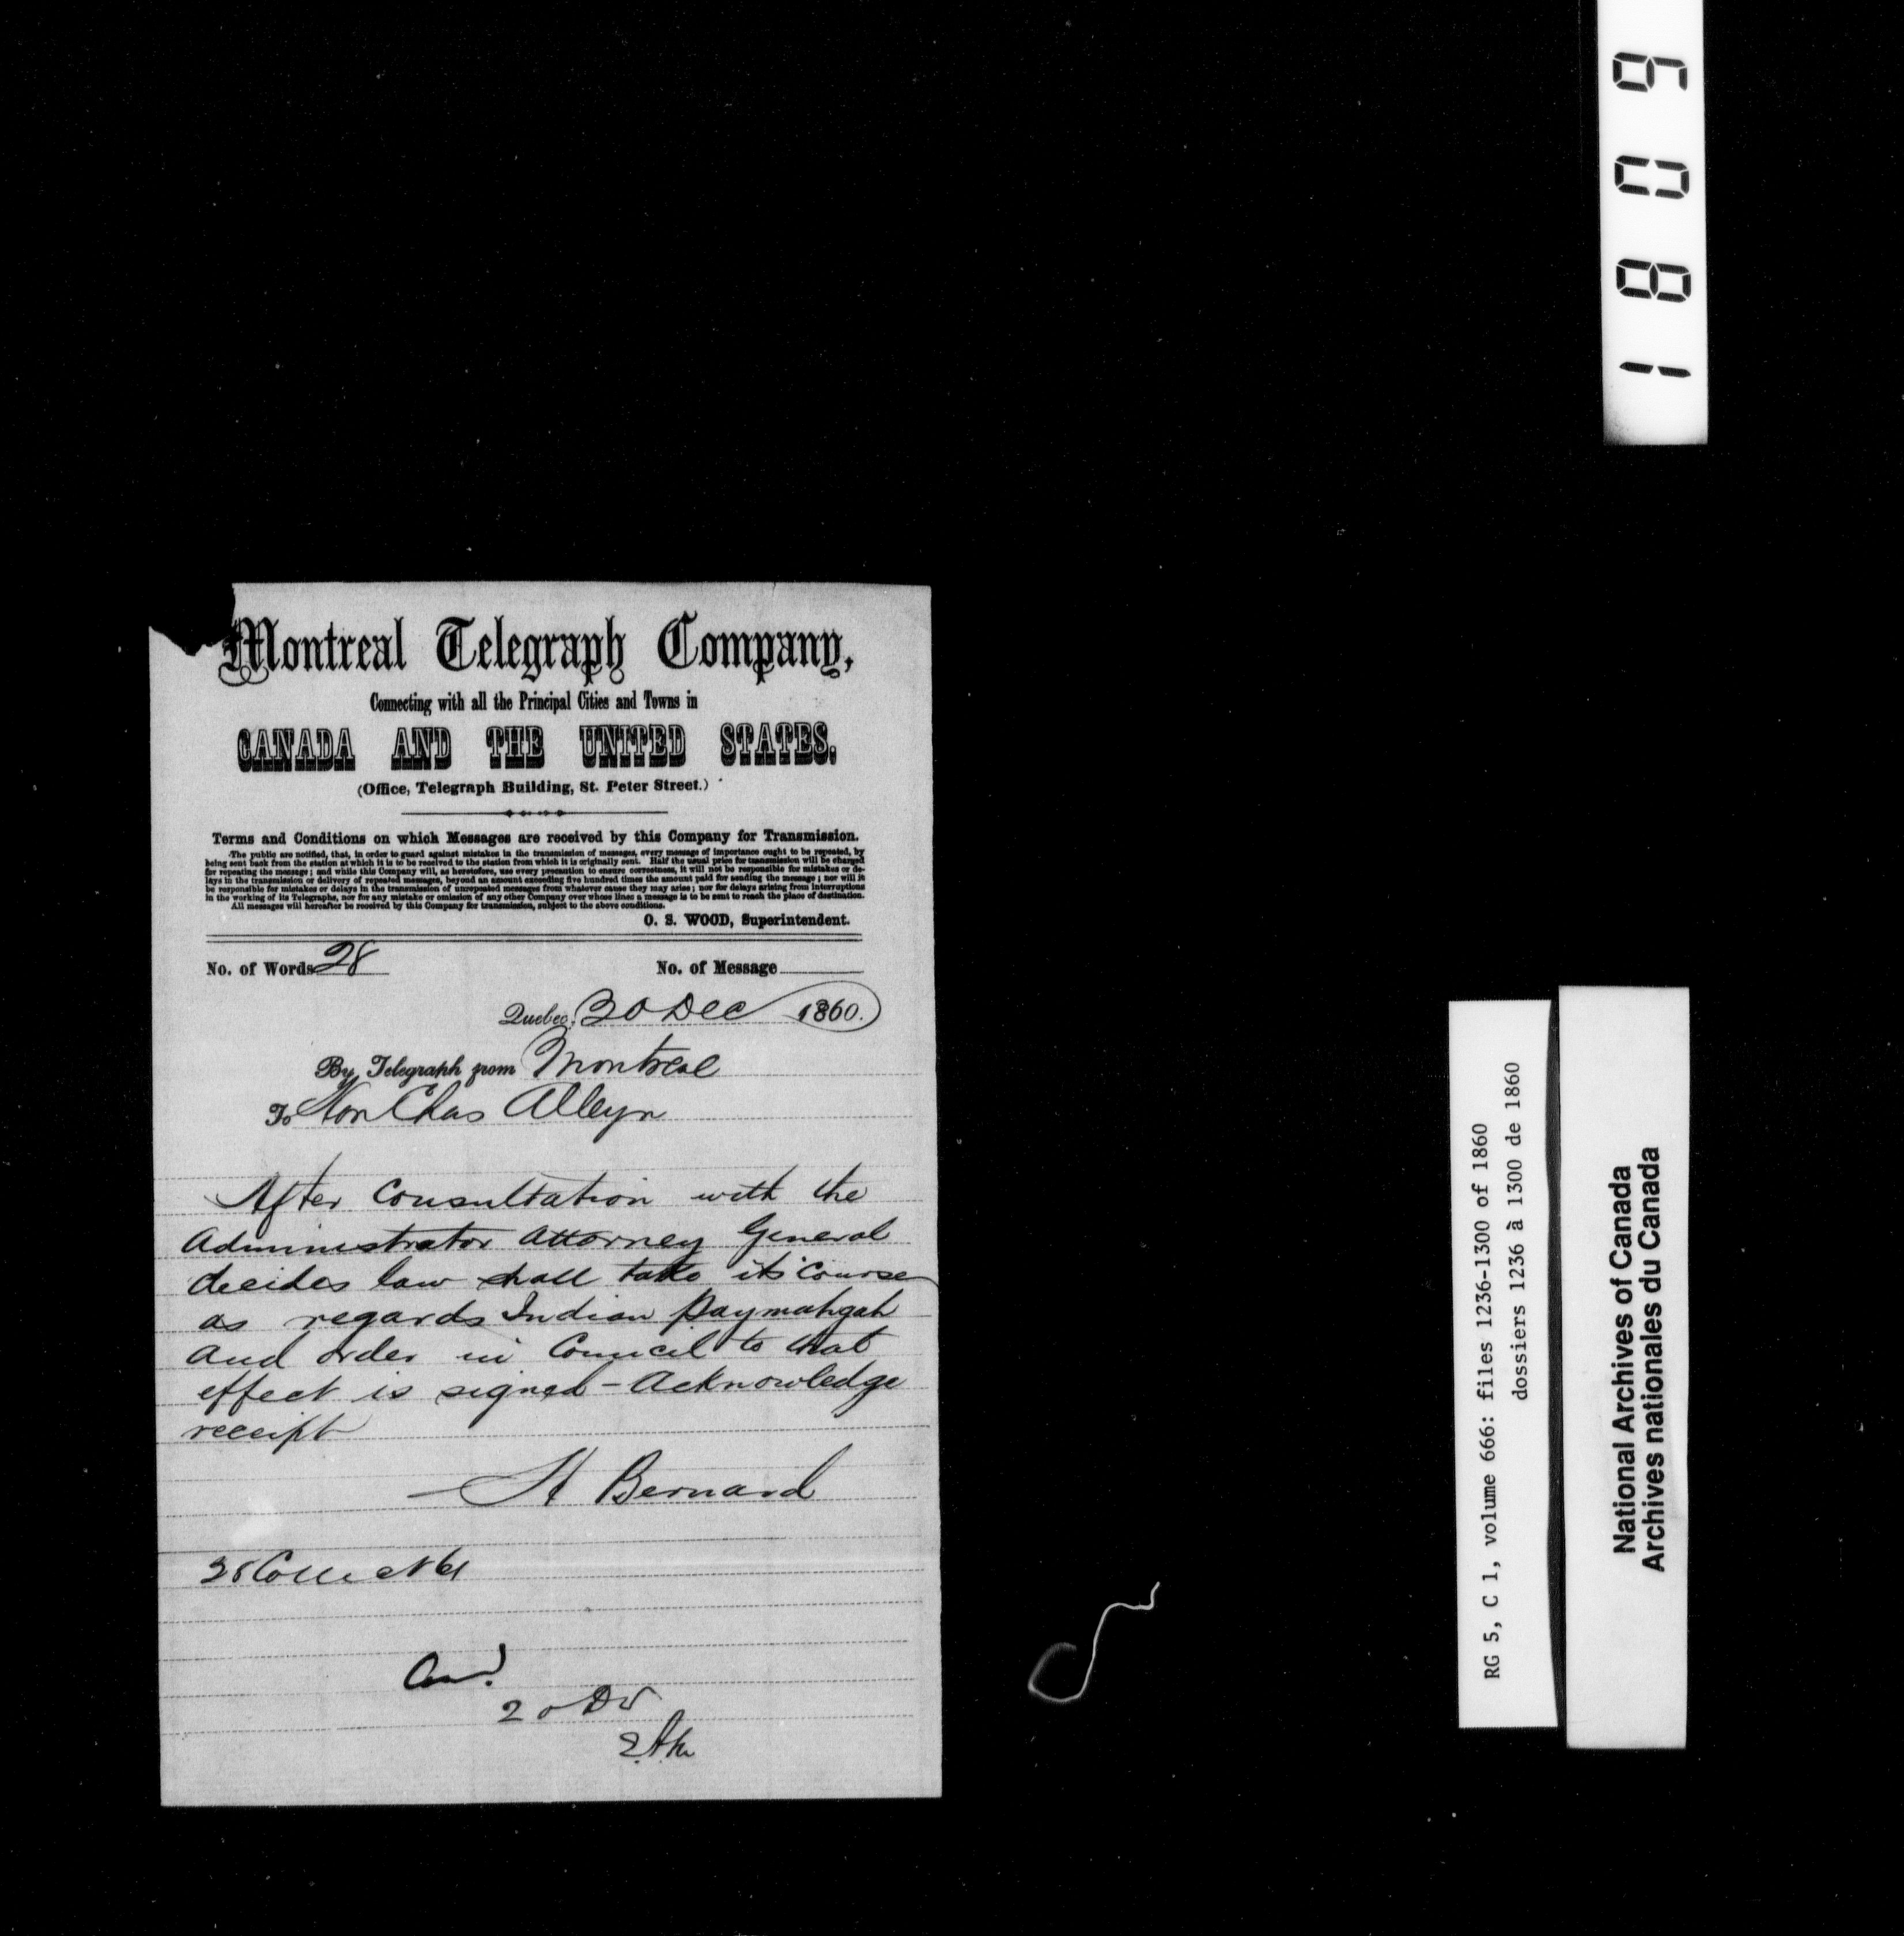 1809
Montreal Telegraph Company,
Connecting with all the Principal Cities and Towns in
CANADA AND THE UNITED STATES.
(Office, Telegraph Building, St. Peter Street.)
Terms and Conditions on which Messages are received by this Company for Transmission.
The public are notified, that, in order to guard against mistakes in the transmission of messages, every message of importance ought to be repeated, by
being sent back from the station at which it is to be received to the station from which it is originally sent. Half the usual price for transmission will be charged
for repeating the message; and while this Company will, as heretofore, use every precaution to ensure correctness, it will not be responsible for mistakes or de-
lays in the transmission or delivery of repeated messages, beyond an amount exceeding five hundred times the amount paid for sending the message; nor will it
be responsible for mistakes or delays in the transmission of unrepeated messages from whatever cause they may arise; nor for delays arising from interruptions
in the working of its Telegraphs, nor for any mistake or omission of any other Company over whose lines a message is to be sent to reach the place of destination.
All messages will hereafter be received by this Company for transmission, subject to the above conditions.
O. S. WOOD, Superintendent.
No. of Words 28 No. of Message
Quebec, 20 Dec 1860.
By Telegraph from Montreal
To Hon Chas Alleyn
After Consultation with the
Administrator Attorney General
decides law shall take its course
as regards Indian Paymahgah
and order in Council to that
effect is signed - Acknowledge
receipt
H Bernard
28
20
RG 5, C 1, volume 666: files 1236-1300 of 1860
dossiers 1236 à 1300 de 1860
National Archives of Canada
Archives nationales du Canada